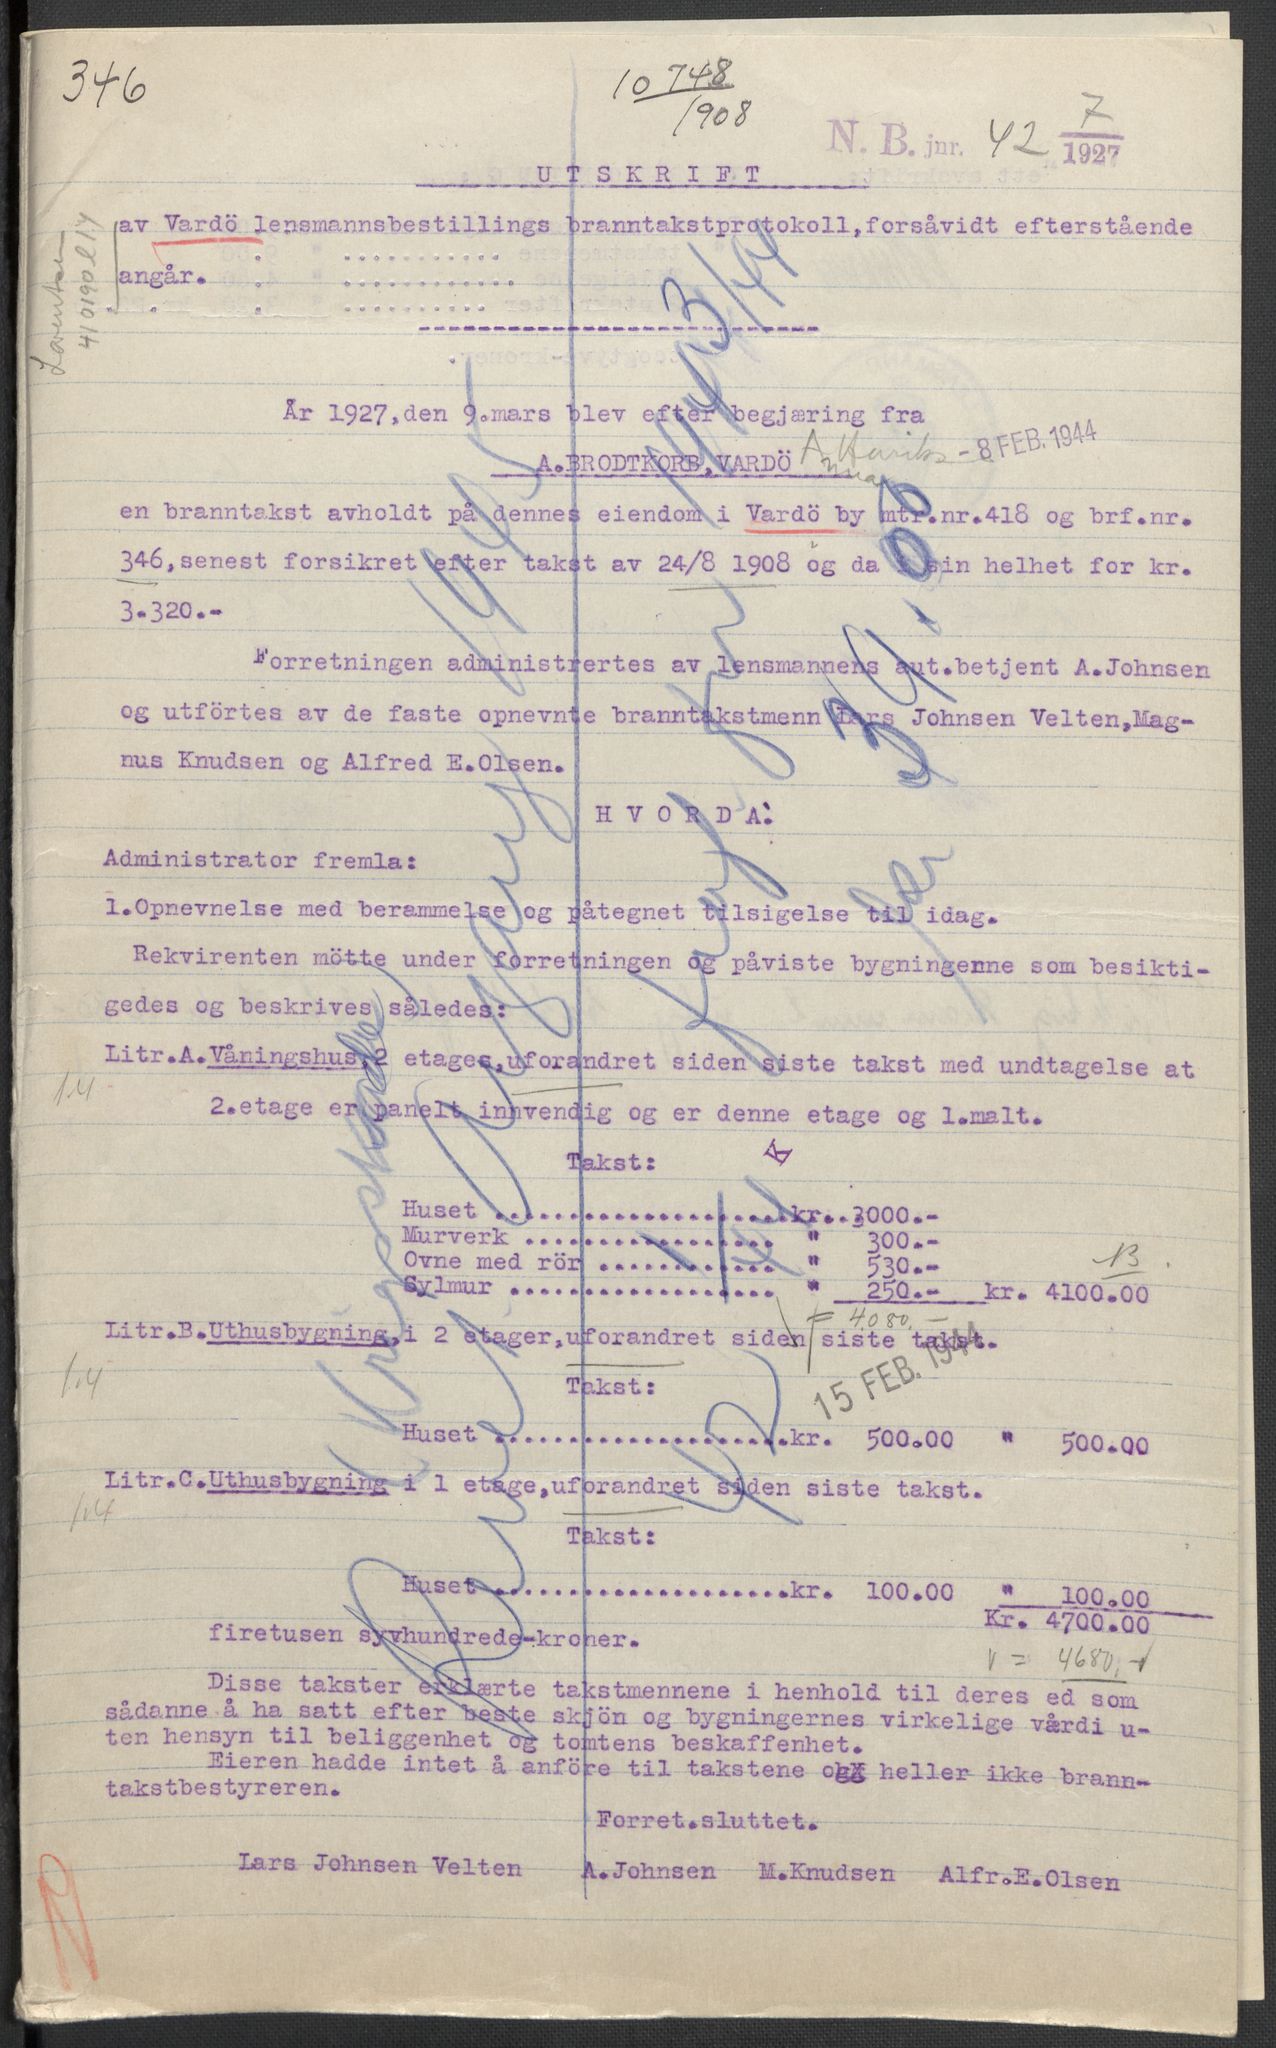 346
10748
1908
N. B. jnr. 42 7
1927
UTSKRIFT
av Vardö lensmannsbestillings branntakstprotokoll, forsåvidt efterstående
angår.
År 1927, den 9.mars blev efter begjæring fra
A.BRODTKORB, VARDÖ
- 8 FEB. 1944
en branntakst avholdt på dennes eiendom i Vardö by mtr.nr.418 og brf.nr.
346, senest forsikret efter takst av 24/8 1908 og da i sin helhet for kr.
3.320.-
Forretningen administrertes av lensmannens aut.betjent A.Johnsen
og utförtes av de faste opnevnte branntakstmenn Lars Johnsen Velten, Mag-
nus Knudsen og Alfred E.Olsen.
HVORDA:
Administrator fremla:
1.Opnevnelse med berammelse og påtegnet tilsigelse til idag.
Rekvirenten mötte under forretningen og påviste bygningenne som besikti-
gedes og beskrives således:
Litr.A.Våningshus, 2 etages, uforandret siden siste takst med undtagelse at
1.4
2.etage er panelt innvendig og er denne etage og 1.malt.
Takst:
Huset ....................kr. 3000.-
Murverk .................. " 300.-
Ovne med rör ............. " 530.-
13
Sylmur ................... " 250.- kr. 4100.00
= 4080.-
Litr.B.Uthusbygning, i 2 etager, uforandret siden siste takst.
15 FEB. 1944
1.4
Takst:
Huset ....................kr. 500.00 " 500.00
Litr.C.Uthusbygning i 1 etage, uforandret siden siste takst.
1.4
Takst:
Huset ....................kr. 100.00 " 100.00
Kr. 4700.00
firetusen syvhundrede-kroner.
= 4680,-
Disse takster erklærte takstmennene i henhold til deres ed som
sådanne å ha satt efter beste skjön og bygningernes virkelige værdi u-
ten hensyn til beliggenhet og tomtens beskaffenhet.
Eieren hadde intet å anföre til takstene og heller ikke brann-
takstbestyreren.
Forret.sluttet.
Lars Johnsen Velten A.Johnsen M.Knudsen Alfr.E.Olsen